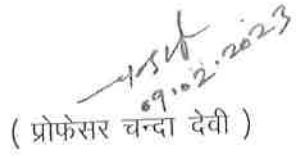 09.02.2023
( प्रोफेसर चन्दा देवी )